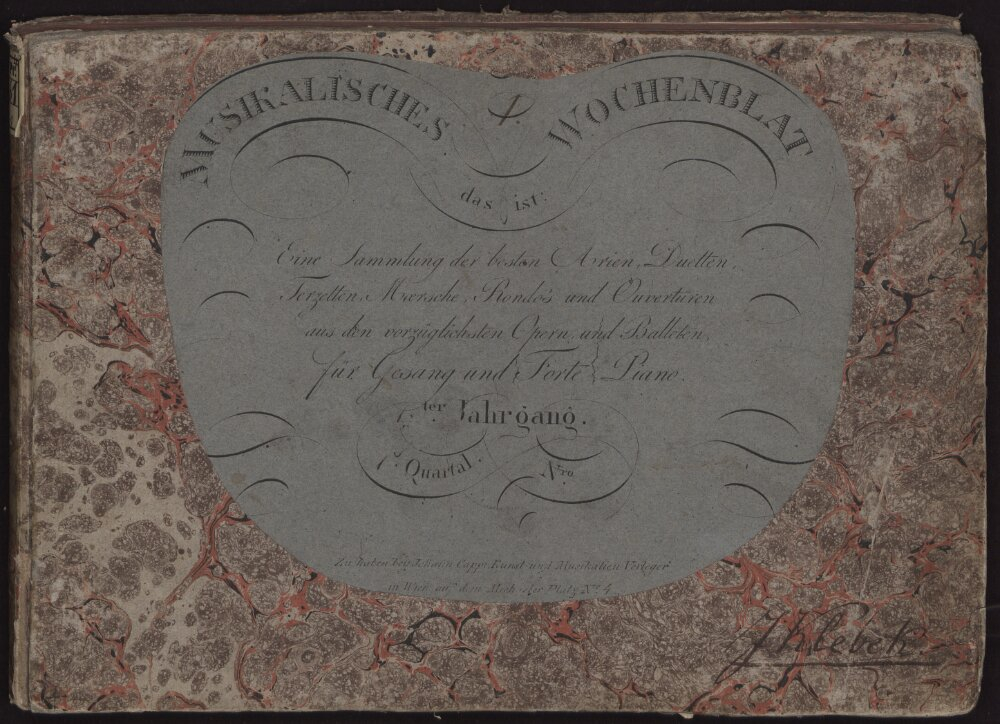 MUSIKALISCHES WOCHENBLAT
1.
das ist:
Eine Sammlung der besten Arien, Duetten,
Terzetten, Mærsche, Rondo's und Ouverturen
aus den vorzüglichsten Opern, und Balleten,
für Gesang und Forte Piano.
1.ter Jahrgang.
1.s Quartal. Nro.
Zu haben bey Cappi Kunst und Musikalien Verleger
in Wien auf dem Platz No. 4
J Klebek.